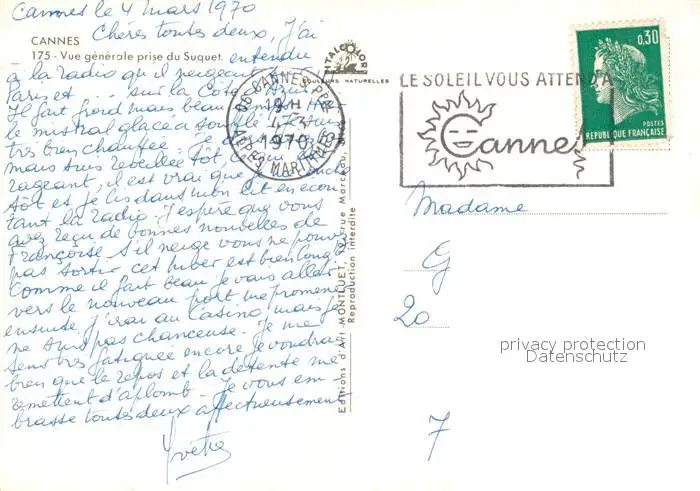 Cannes le 4 mars 1970
Chères toutes deux, J'ai
CANNES
175 - Vue générale prise du Suquet.
entendu
à la radio qu'il neigeait
Paris et sur la Côte d'Azur
Il fait froid mais beau
le mistral glacé a soufflé. Je suis
très bien chauffée. Je
mais suis réveillée tôt, c'est
rageant, il est vrai que
tôt et je lis dans mon lit en écou
tant la radio. J'espère que vous
avez reçu de bonnes nouvelles de
Françoise. S'il neige vous ne pouvez
pas sortir cet hiver est bien long
Comme il fait beau je vais aller
vers le nouveau port me promener
ensuite j'irai au Casino, mais je
ne suis pas chanceuse. Je me
sens très fatiguée encore je voudrais
bien que le repos et la détente me
remettent d'aplomb. Je vous em-
brasse toutes deux affectueusement
Yvette
ITALCOLOR
COULEURS NATURELLES
Editions d'Art MONTLUET, rue Marceau,
Reproduction interdite
06 CANNES PPAL
19 H
4-3
1970
ALPES MARITIMES
LE SOLEIL VOUS ATTEND A
Cannes
0,30
POSTES
REPUBLIQUE FRANÇAISE
Madame
G
20
7
privacy protection
Datenschutz